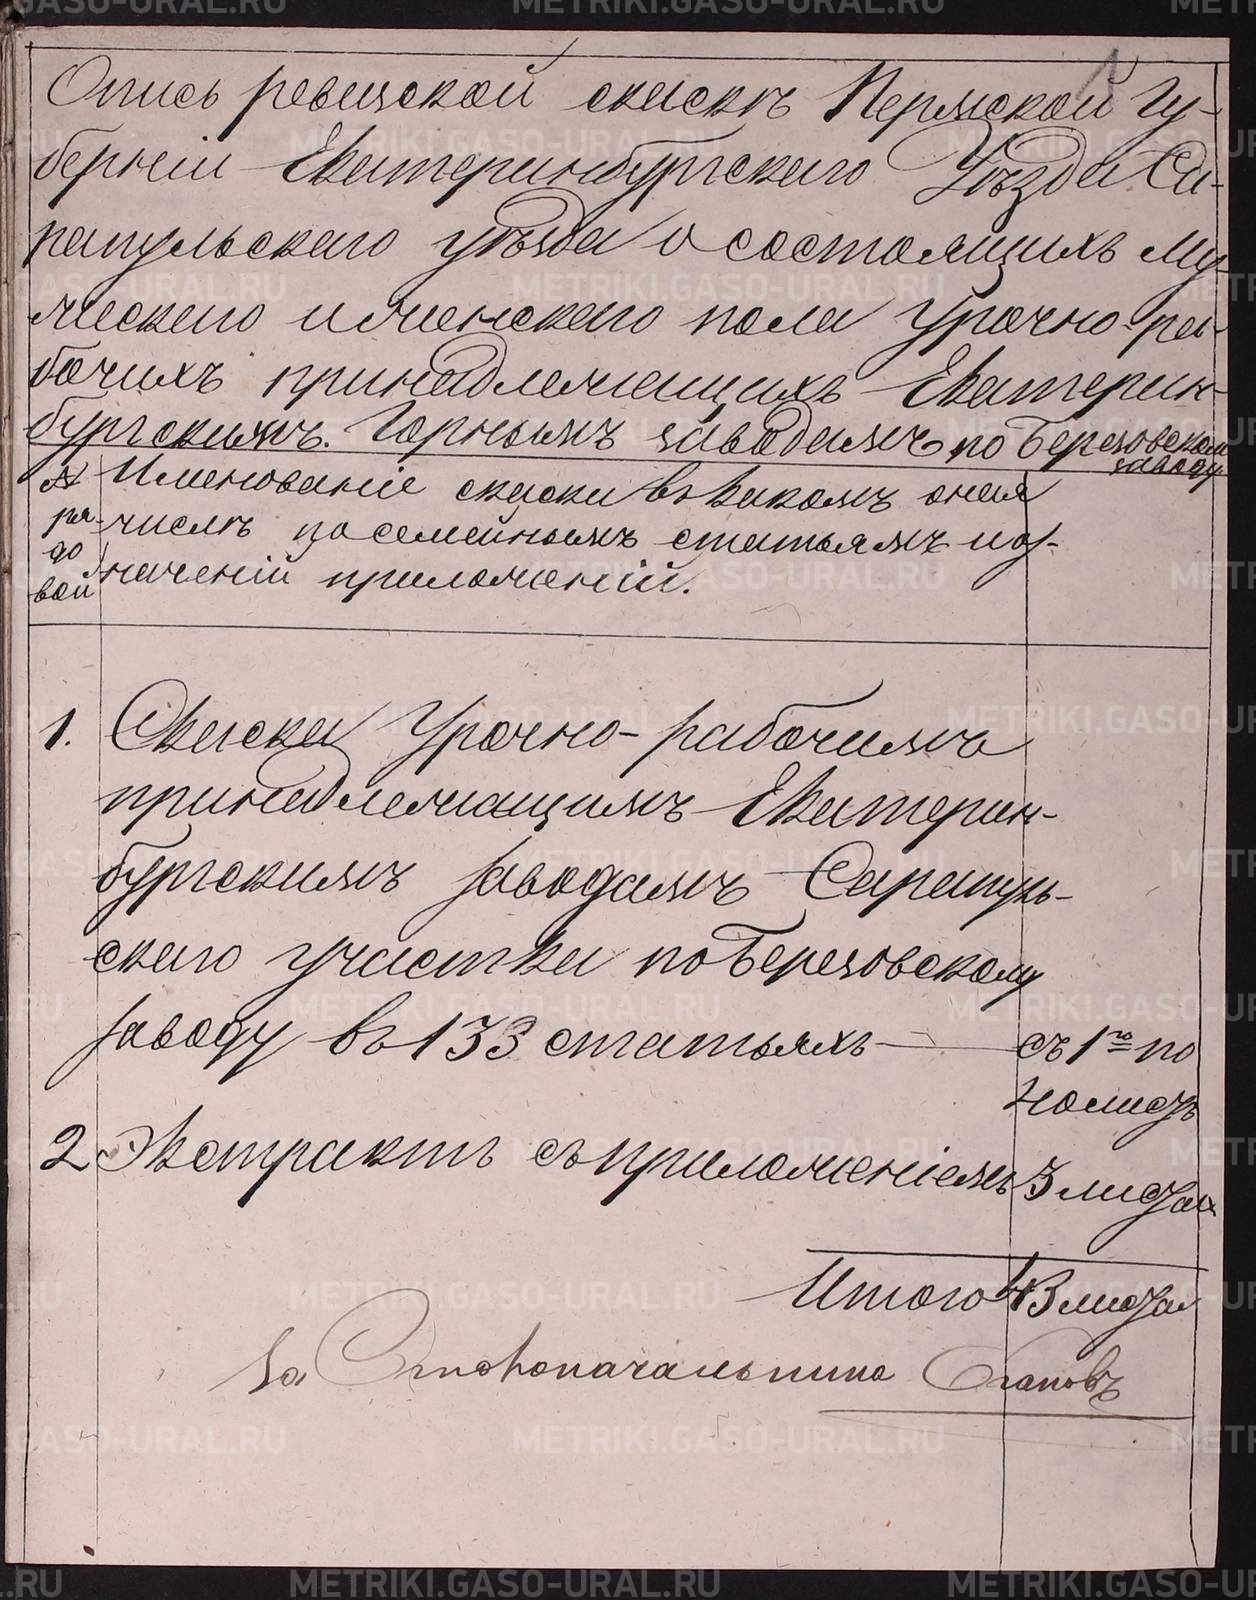 Опись ревизской сказкѣ Пермской Гу-
берніи Екатеринбургскаго Уѣзда Са-
рапульскаго уѣзда о состоящихъ му-
жескаго и женскаго пола Урочно-ра-
бочихъ принадлежащихъ Екатерин-
бургскимъ Горнымъ заводамъ по Березовском
заводу
№
ря
до
вой
Именованіе сказки въ какомъ оная
числѣ по семейнымъ статьямъ и оз-
наченій приложеній.
1. Сказка Урочно-рабочимъ
принадлежащимъ Екатерин-
бургскимъ заводамъ Сарапуль-
скаго участка по Березовскому
заводу въ 133 статьяхъ — съ 1го по
40 листъ
2 Экстрактъ съ приложеніемъ 3 листах
Итого 43 листа
За Столоначальника
METRIKI.GASO-URAL.RU